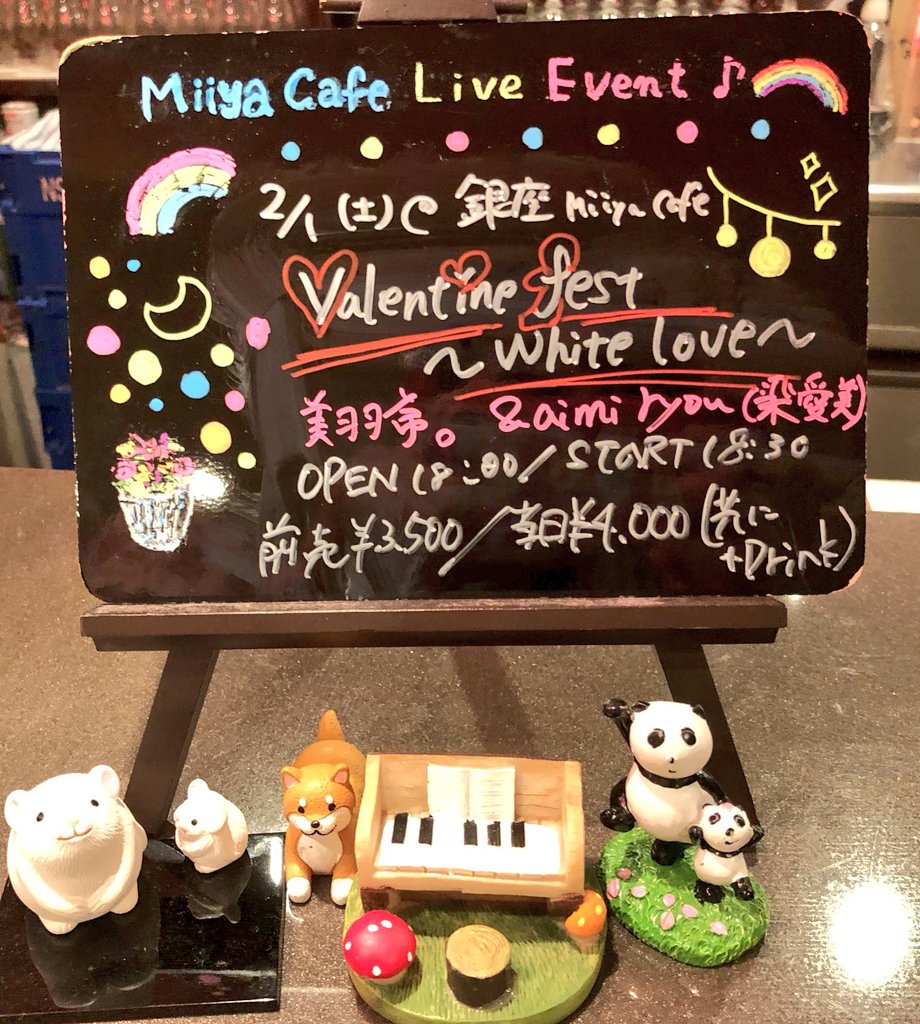 Miiya Cafe Live Event ♪
2/1 (土) @ 銀座 Miiya Cafe
Valentine fest
~White love~
美羽亭。 &aimi ryou (梁愛美)
OPEN 18:00/START 18:30
前売¥3,500/当日¥4.000 (共に
+Drink)